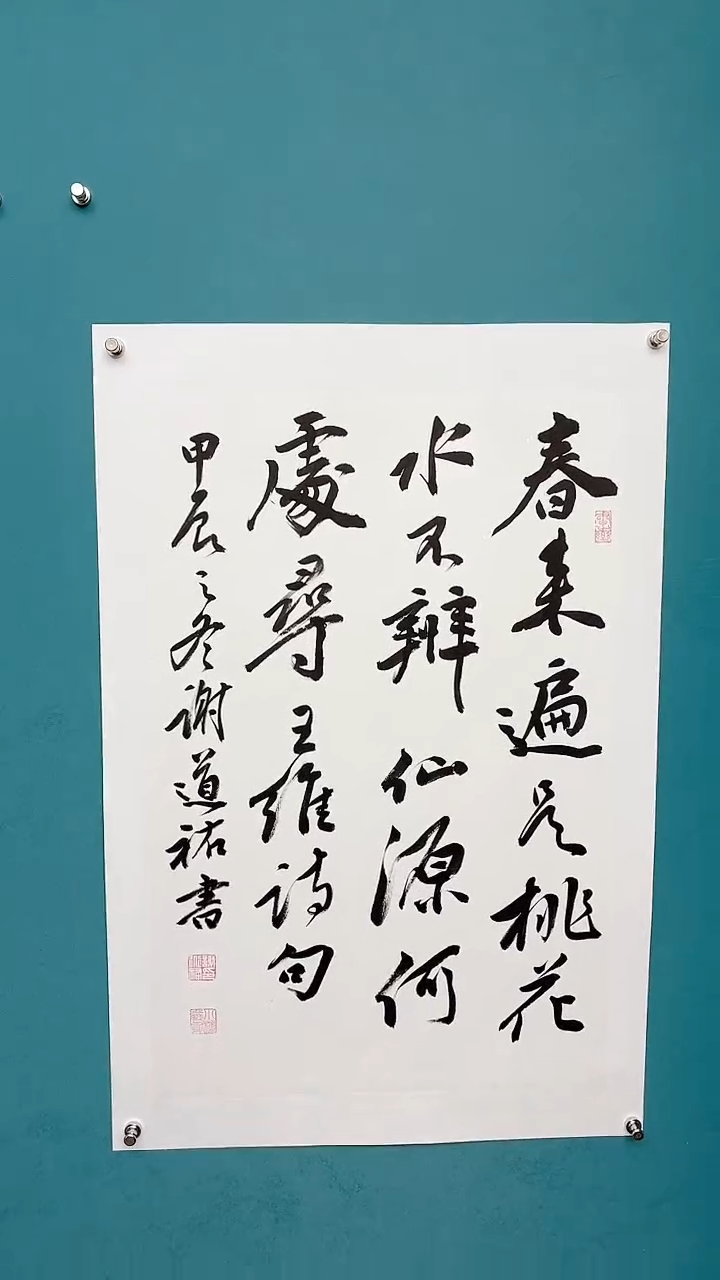 春来遍是桃花
水不辨仙源何
處尋王維诗句
甲辰之冬谢道祐書